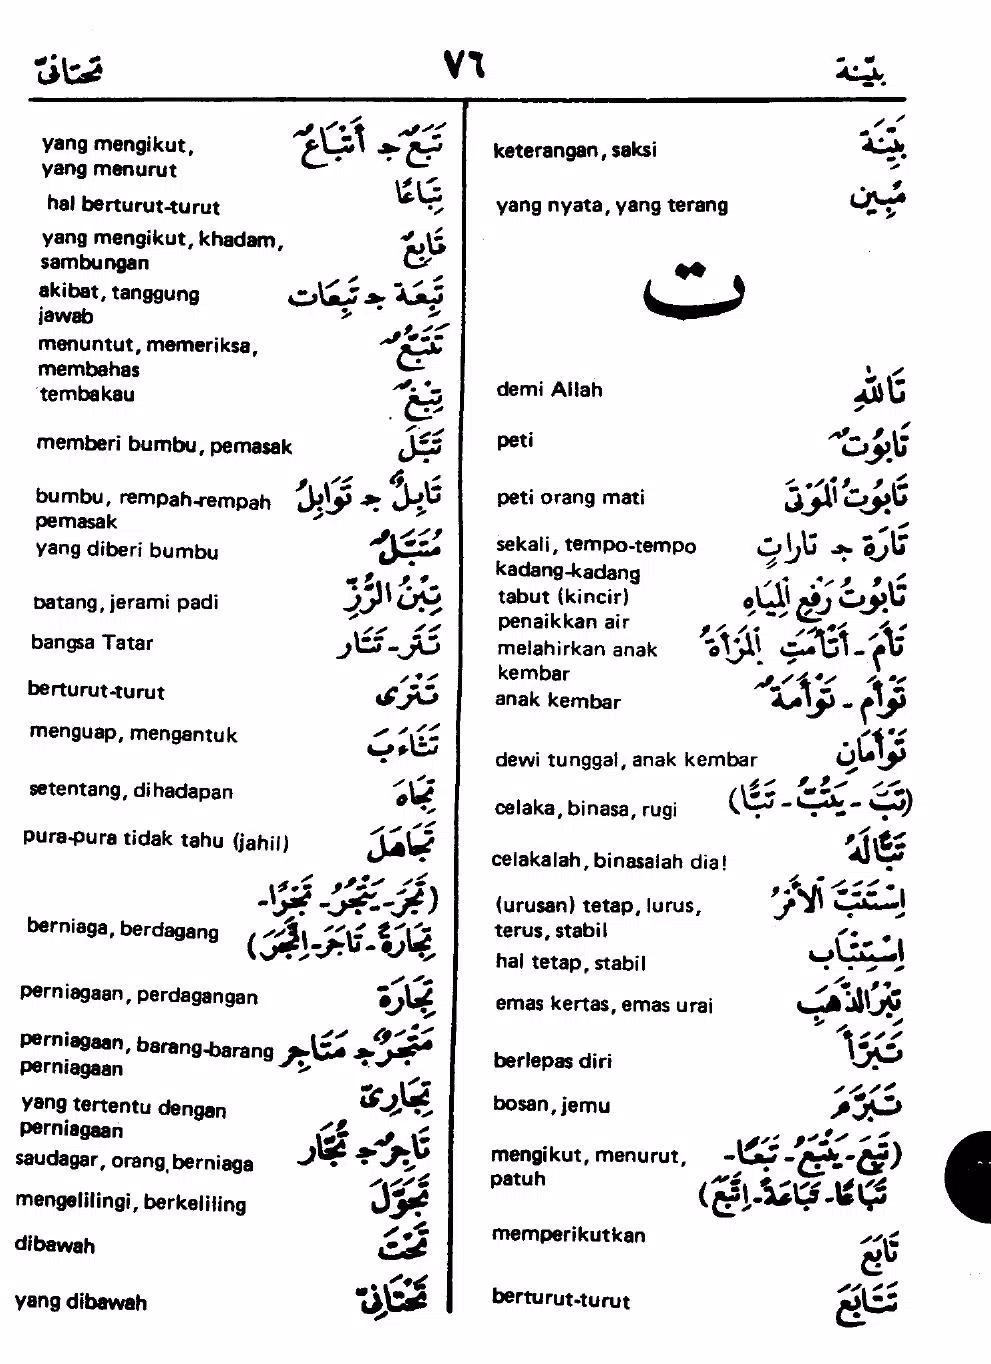 بيّنة ٧٦ تحتانيّ
بَيِّنَة keterangan, saksi
مُبِين yang nyata, yang terang
ت
تَاللهِ demi Allah
تَابُوتٌ peti
تَابُوتُ الْمَوْتَى peti orang mati
تَارَة ج تَارَاتٍ sekali, tempo-tempo
kadang-kadang
تَابُوتُ رَفْعِ الْمِيَاهِ tabut (kincir)
penaikkan air
تَأَمَ - أَتْأَمَتِ الْمَرْأَةُ melahirkan anak
kembar
تَوْأَم - تَوْأَمَةٌ anak kembar
تَوْأَمَانِ dewi tunggal, anak kembar
(تَبَّ - يَتُبُّ - تَبًّا) celaka, binasa, rugi
تَبًّا لَهُ celakalah, binasalah dia!
اِسْتَتَبَّ الْأَمْرُ (urusan) tetap, lurus,
terus, stabil
اِسْتِتْبَاب hal tetap, stabil
تِبْرُ الذَّهَبِ emas kertas, emas urai
تَبَرَّأَ berlepas diri
تَبَرَّمَ bosan, jemu
(تَبِعَ - يَتْبَعُ - تَبَعًا - mengikut, menurut,
تَبَاعًا - تَبَاعَةً - اِتَّبَعَ) patuh
تَابَعَ memperikutkan
تَتَابَعَ berturut-turut
تَبَعٌ ج أَتْبَاعٌ yang mengikut,
yang menurut
تِبَاعًا hal berturut-turut
تَابِعٌ yang mengikut, khadam,
sambungan
تَبِعَة ج تَبِعَات akibat, tanggung
jawab
تَتَبُّعٌ menuntut, memeriksa,
membahas
تِبْغٌ tembakau
تَبَّلَ memberi bumbu, pemasak
تَابِلٌ ج تَوَابِلُ bumbu, rempah-rempah
pemasak
مُتَبَّلٌ yang diberi bumbu
تِبْنُ الرُّزِّ batang, jerami padi
تَتَر - تَتَار bangsa Tatar
تَتْرَى berturut-turut
تَثَاءَبَ menguap, mengantuk
تِجَاهَ setentang, dihadapan
تَجَاهَلَ pura-pura tidak tahu (jahil)
(تَجَرَ - يَتْجُرُ - تَجْرًا -
تِجَارَةً - تَاجَرَ - اِتَّجَرَ) berniaga, berdagang
تِجَارَة perniagaan, perdagangan
مَتْجَرٌ ج مَتَاجِر perniagaan, barang-barang
perniagaan
تِجَارِيّ yang tertentu dengan
perniagaan
تَاجِرٌ ج تُجَّار saudagar, orang berniaga
تَجَوَّلَ mengelilingi, berkeliling
تَحْتَ dibawah
تَحْتَانِيّ yang dibawah